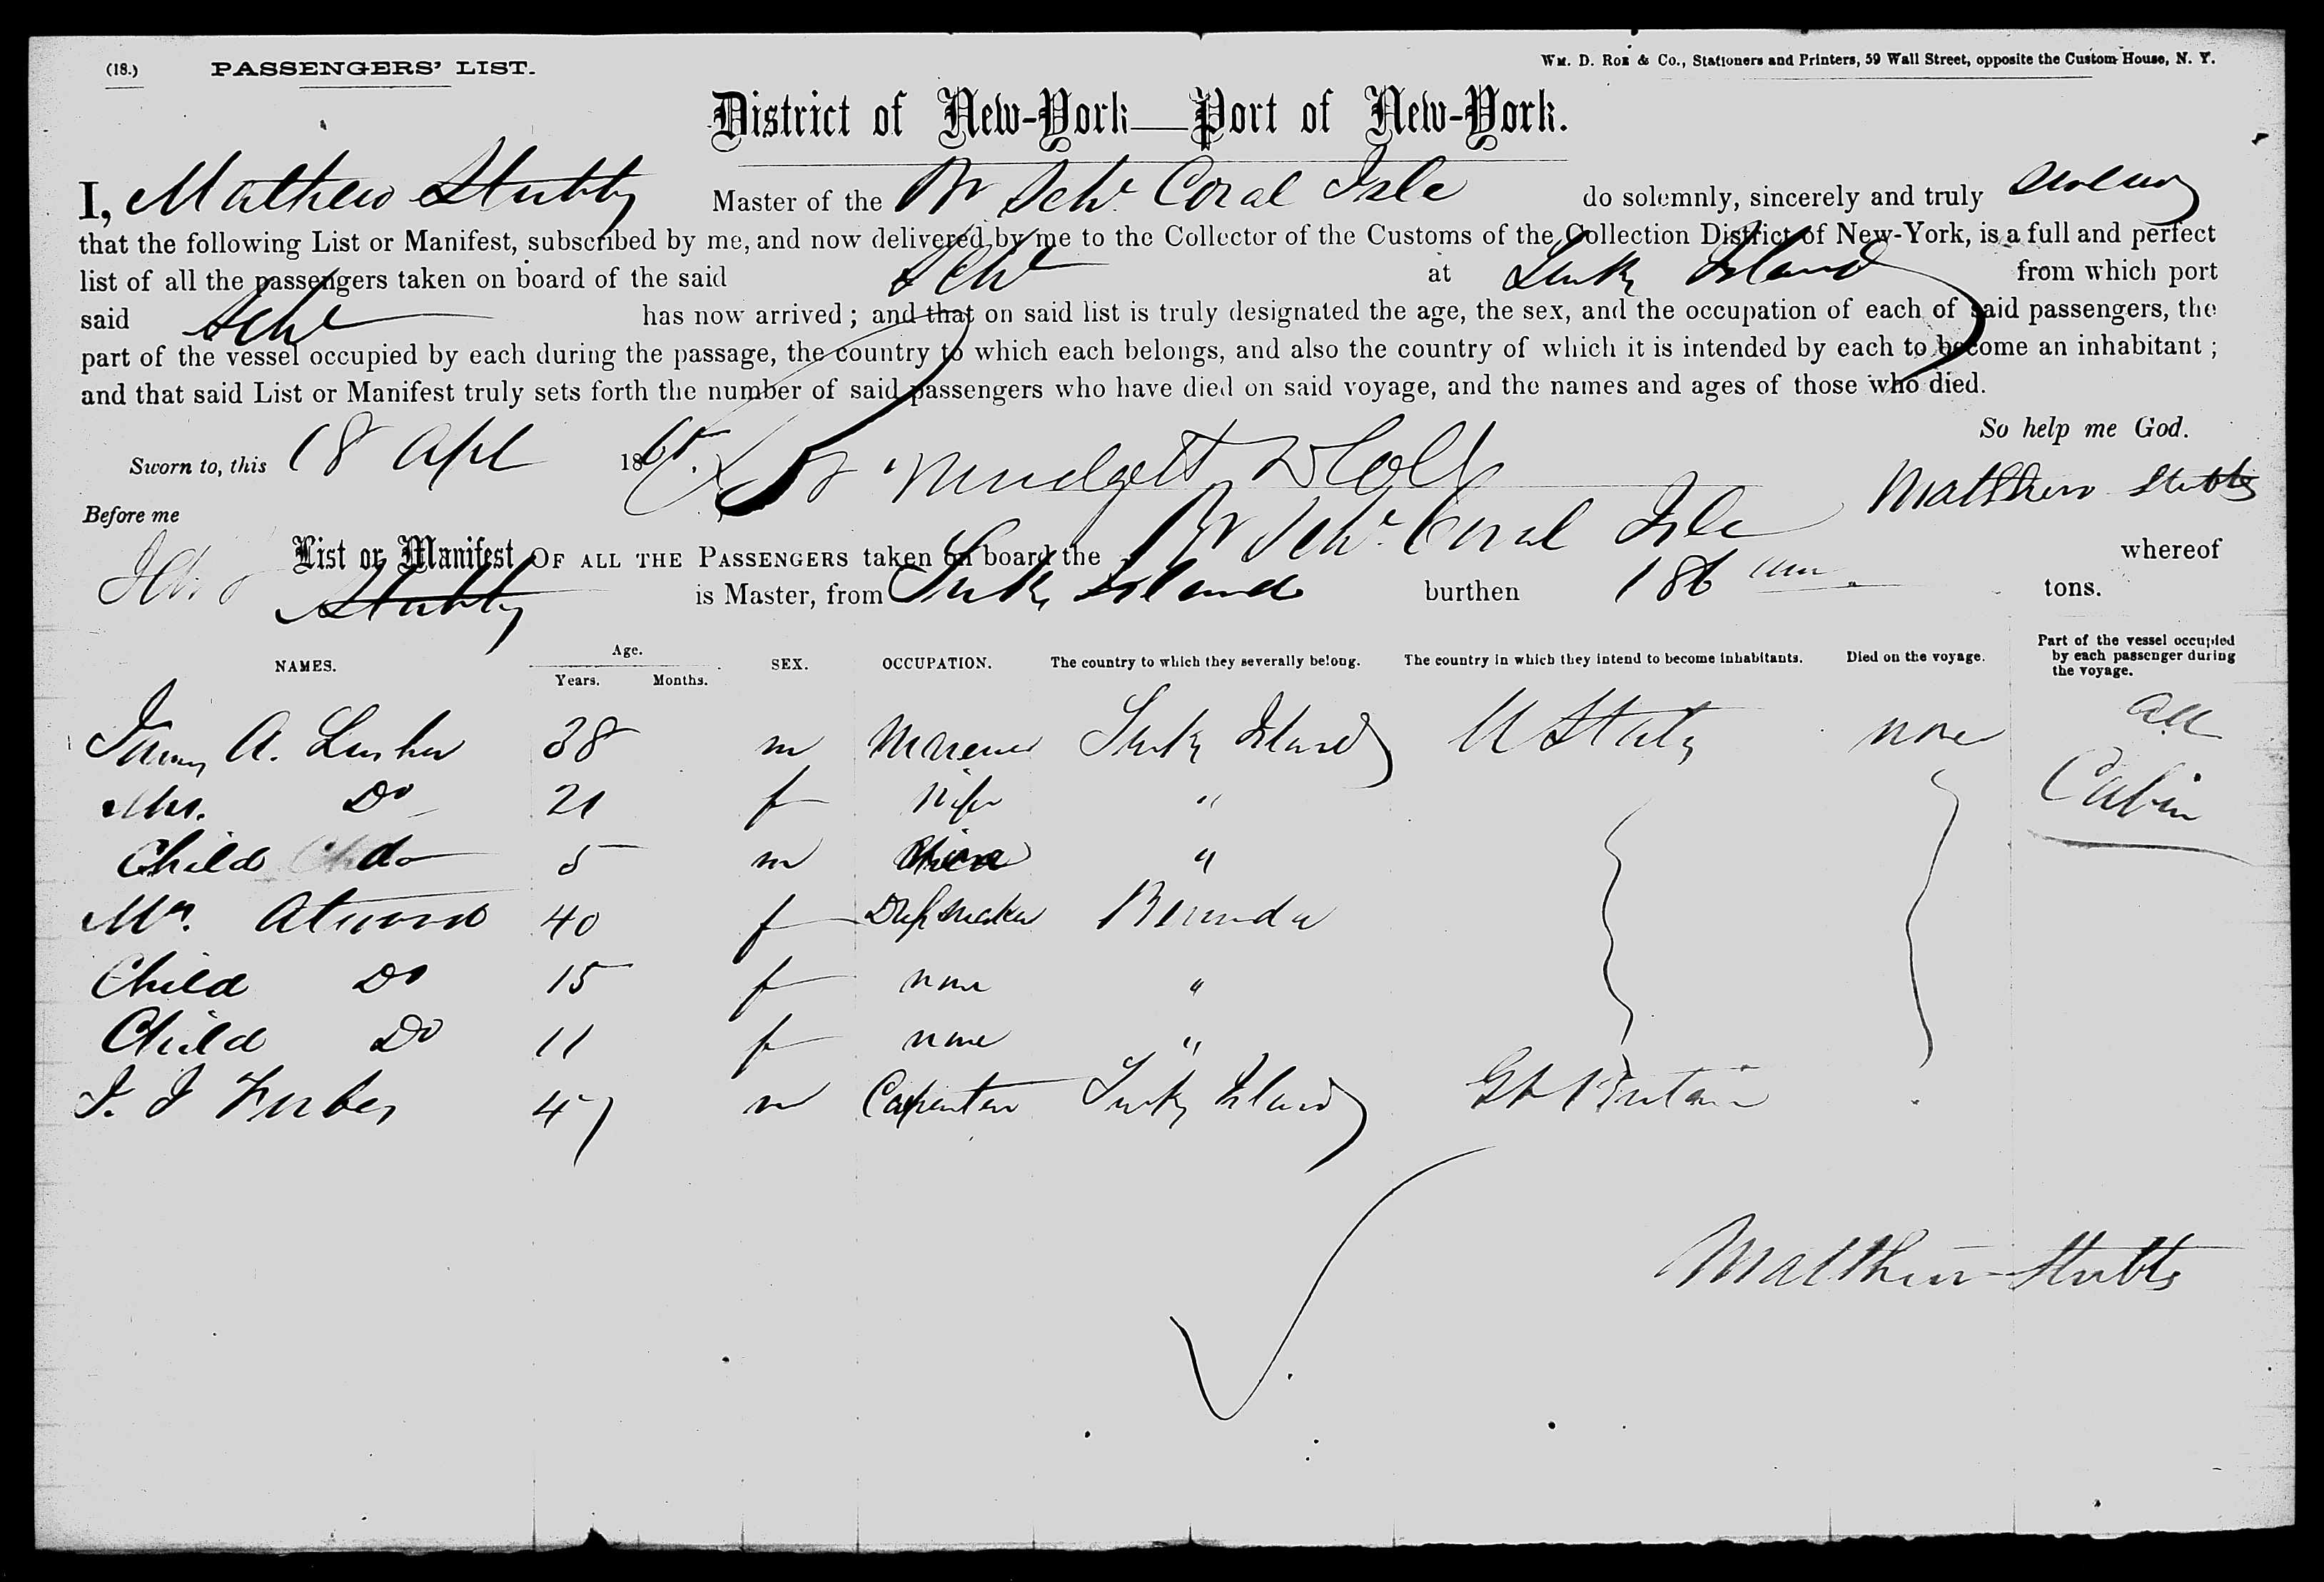 (18.) PASSENGERS' LIST. Wm. D. Roe & Co., Stationers and Printers, 59 Wall Street, opposite the Custom House, N. Y.
District of New-York—Port of New-York.
I, Mathew Stubbs Master of the Br Schr Coral Isle do solemnly, sincerely and truly swear
that the following List or Manifest, subscribed by me, and now delivered by me to the Collector of the Customs of the Collection District of New-York, is a full and perfect
list of all the passengers taken on board of the said Schr at Turks Islands from which port
said Schr has now arrived; and that on said list is truly designated the age, the sex, and the occupation of each of said passengers, the
part of the vessel occupied by each during the passage, the country to which each belongs, and also the country of which it is intended by each to become an inhabitant;
and that said List or Manifest truly sets forth the number of said passengers who have died on said voyage, and the names and ages of those who died.
So help me God.
Sworn to, this 18 Apl 1865. Mudgett D Coll
Matthew Stubbs
Before me
List or Manifest OF ALL THE PASSENGERS taken on board the Br Schr Coral Isle whereof
Stubbs is Master, from Turks Islands burthen 186 tons.
NAMES. Age. Years. Months. SEX. OCCUPATION. The country to which they severally belong. The country in which they intend to become inhabitants. Died on the voyage. Part of the vessel occupied by each passenger during the voyage.
James A. Lusher 38 m Marener Turks Islands U States none all
Mrs. Do 21 f Wife " Cabin
Child do 5 m "
Mrs. Atwood 40 f Dressmaker Bermuda
Child Do 15 f none "
Child Do 11 f none "
J. J Forbes 47 m Carpenter Turks Islands Gt Britain
Matthew Stubbs